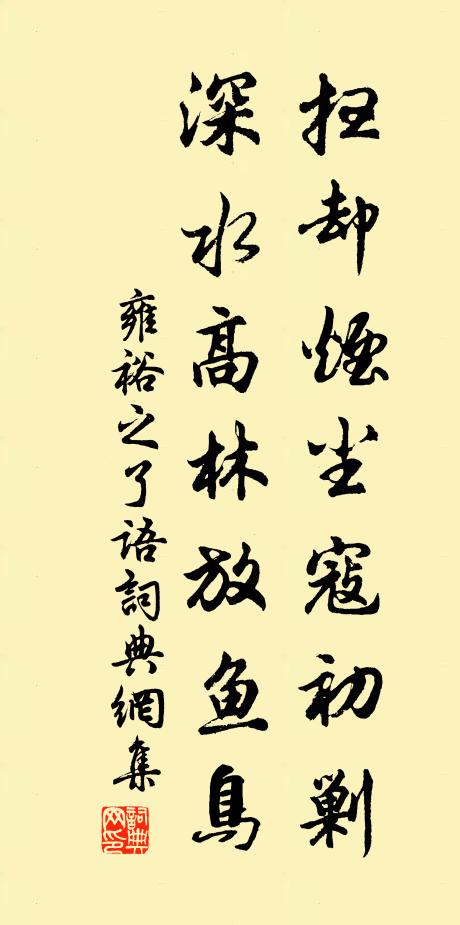 扫却煙尘寇初剿
深水高林放鱼鸟
雍裕之了语詞典網集
詞典网印